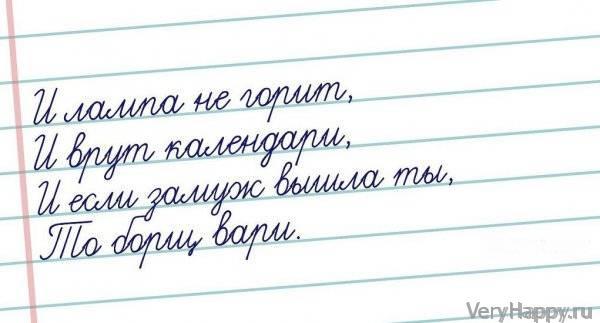 И лампа не горит,
И врут календари,
И если замуж вышла ты,
То борщ вари.
VeryHappy.ru